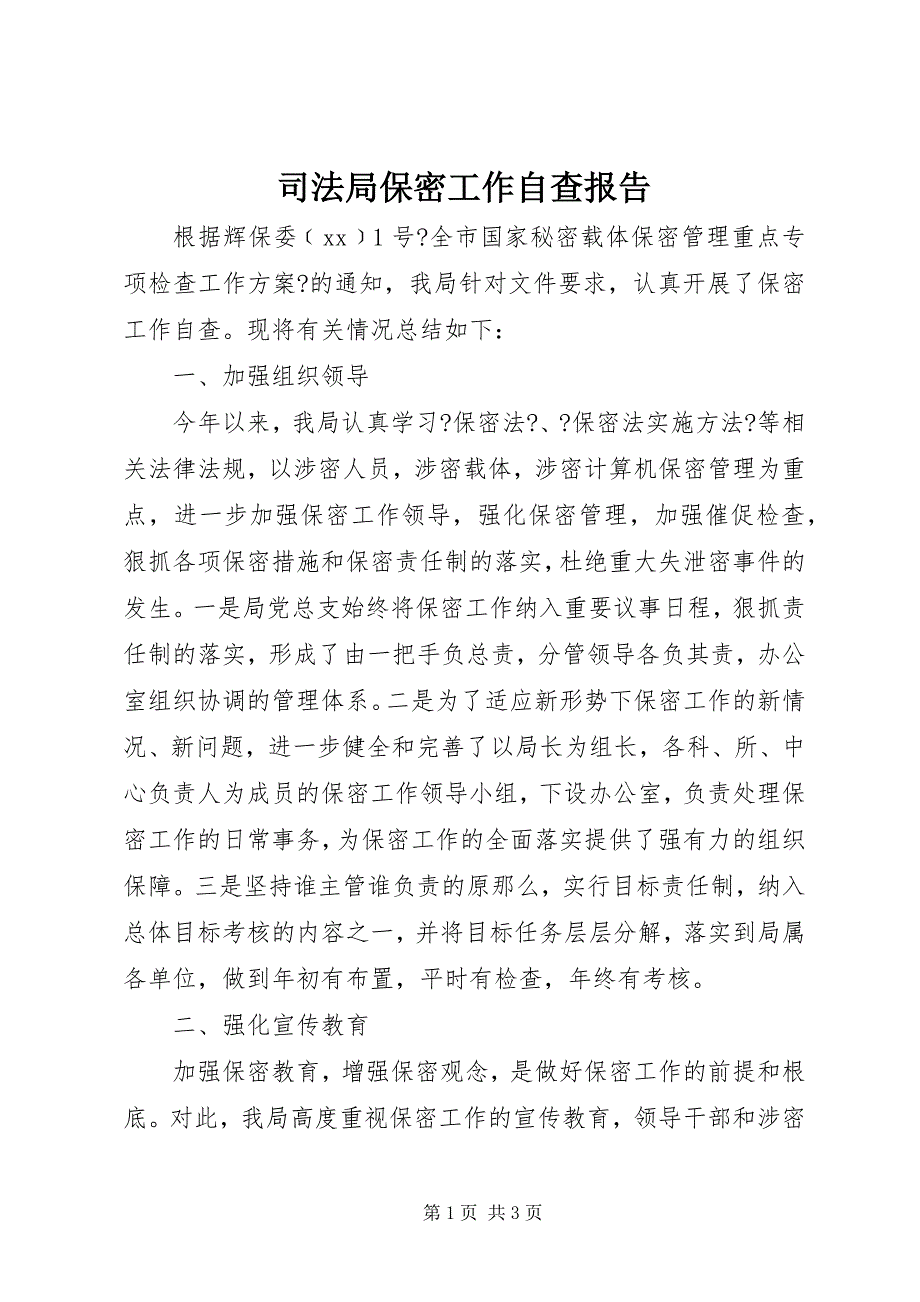 司法局保密工作自查报告
根据辉保委﹙xx﹚1 号?全市国家秘密载体保密管理重点专
项检查工作方案?的通知，我局针对文件要求，认真开展了保密
工作自查。现将有关情况总结如下：
一、加强组织领导
今年以来，我局认真学习?保密法?、?保密法实施方法?等相
关法律法规，以涉密人员，涉密载体，涉密计算机保密管理为重
点，进一步加强保密工作领导，强化保密管理，加强催促检查，
狠抓各项保密措施和保密责任制的落实，杜绝重大失泄密事件的
发生。一是局党总支始终将保密工作纳入重要议事日程，狠抓责
任制的落实，形成了由一把手负总责，分管领导各负其责，办公
室组织协调的管理体系。二是为了适应新形势下保密工作的新情
况、新问题，进一步健全和完善了以局长为组长，各科、所、中
心负责人为成员的保密工作领导小组，下设办公室，负责处理保
密工作的日常事务，为保密工作的全面落实提供了强有力的组织
保障。三是坚持谁主管谁负责的原那么，实行目标责任制，纳入
总体目标考核的内容之一，并将目标任务层层分解，落实到局属
各单位，做到年初有布置，平时有检查，年终有考核。
二、强化宣传教育
加强保密教育，增强保密观念，是做好保密工作的前提和根
底。对此，我局高度重视保密工作的宣传教育，领导干部和涉密
第 1 页 共 3 页